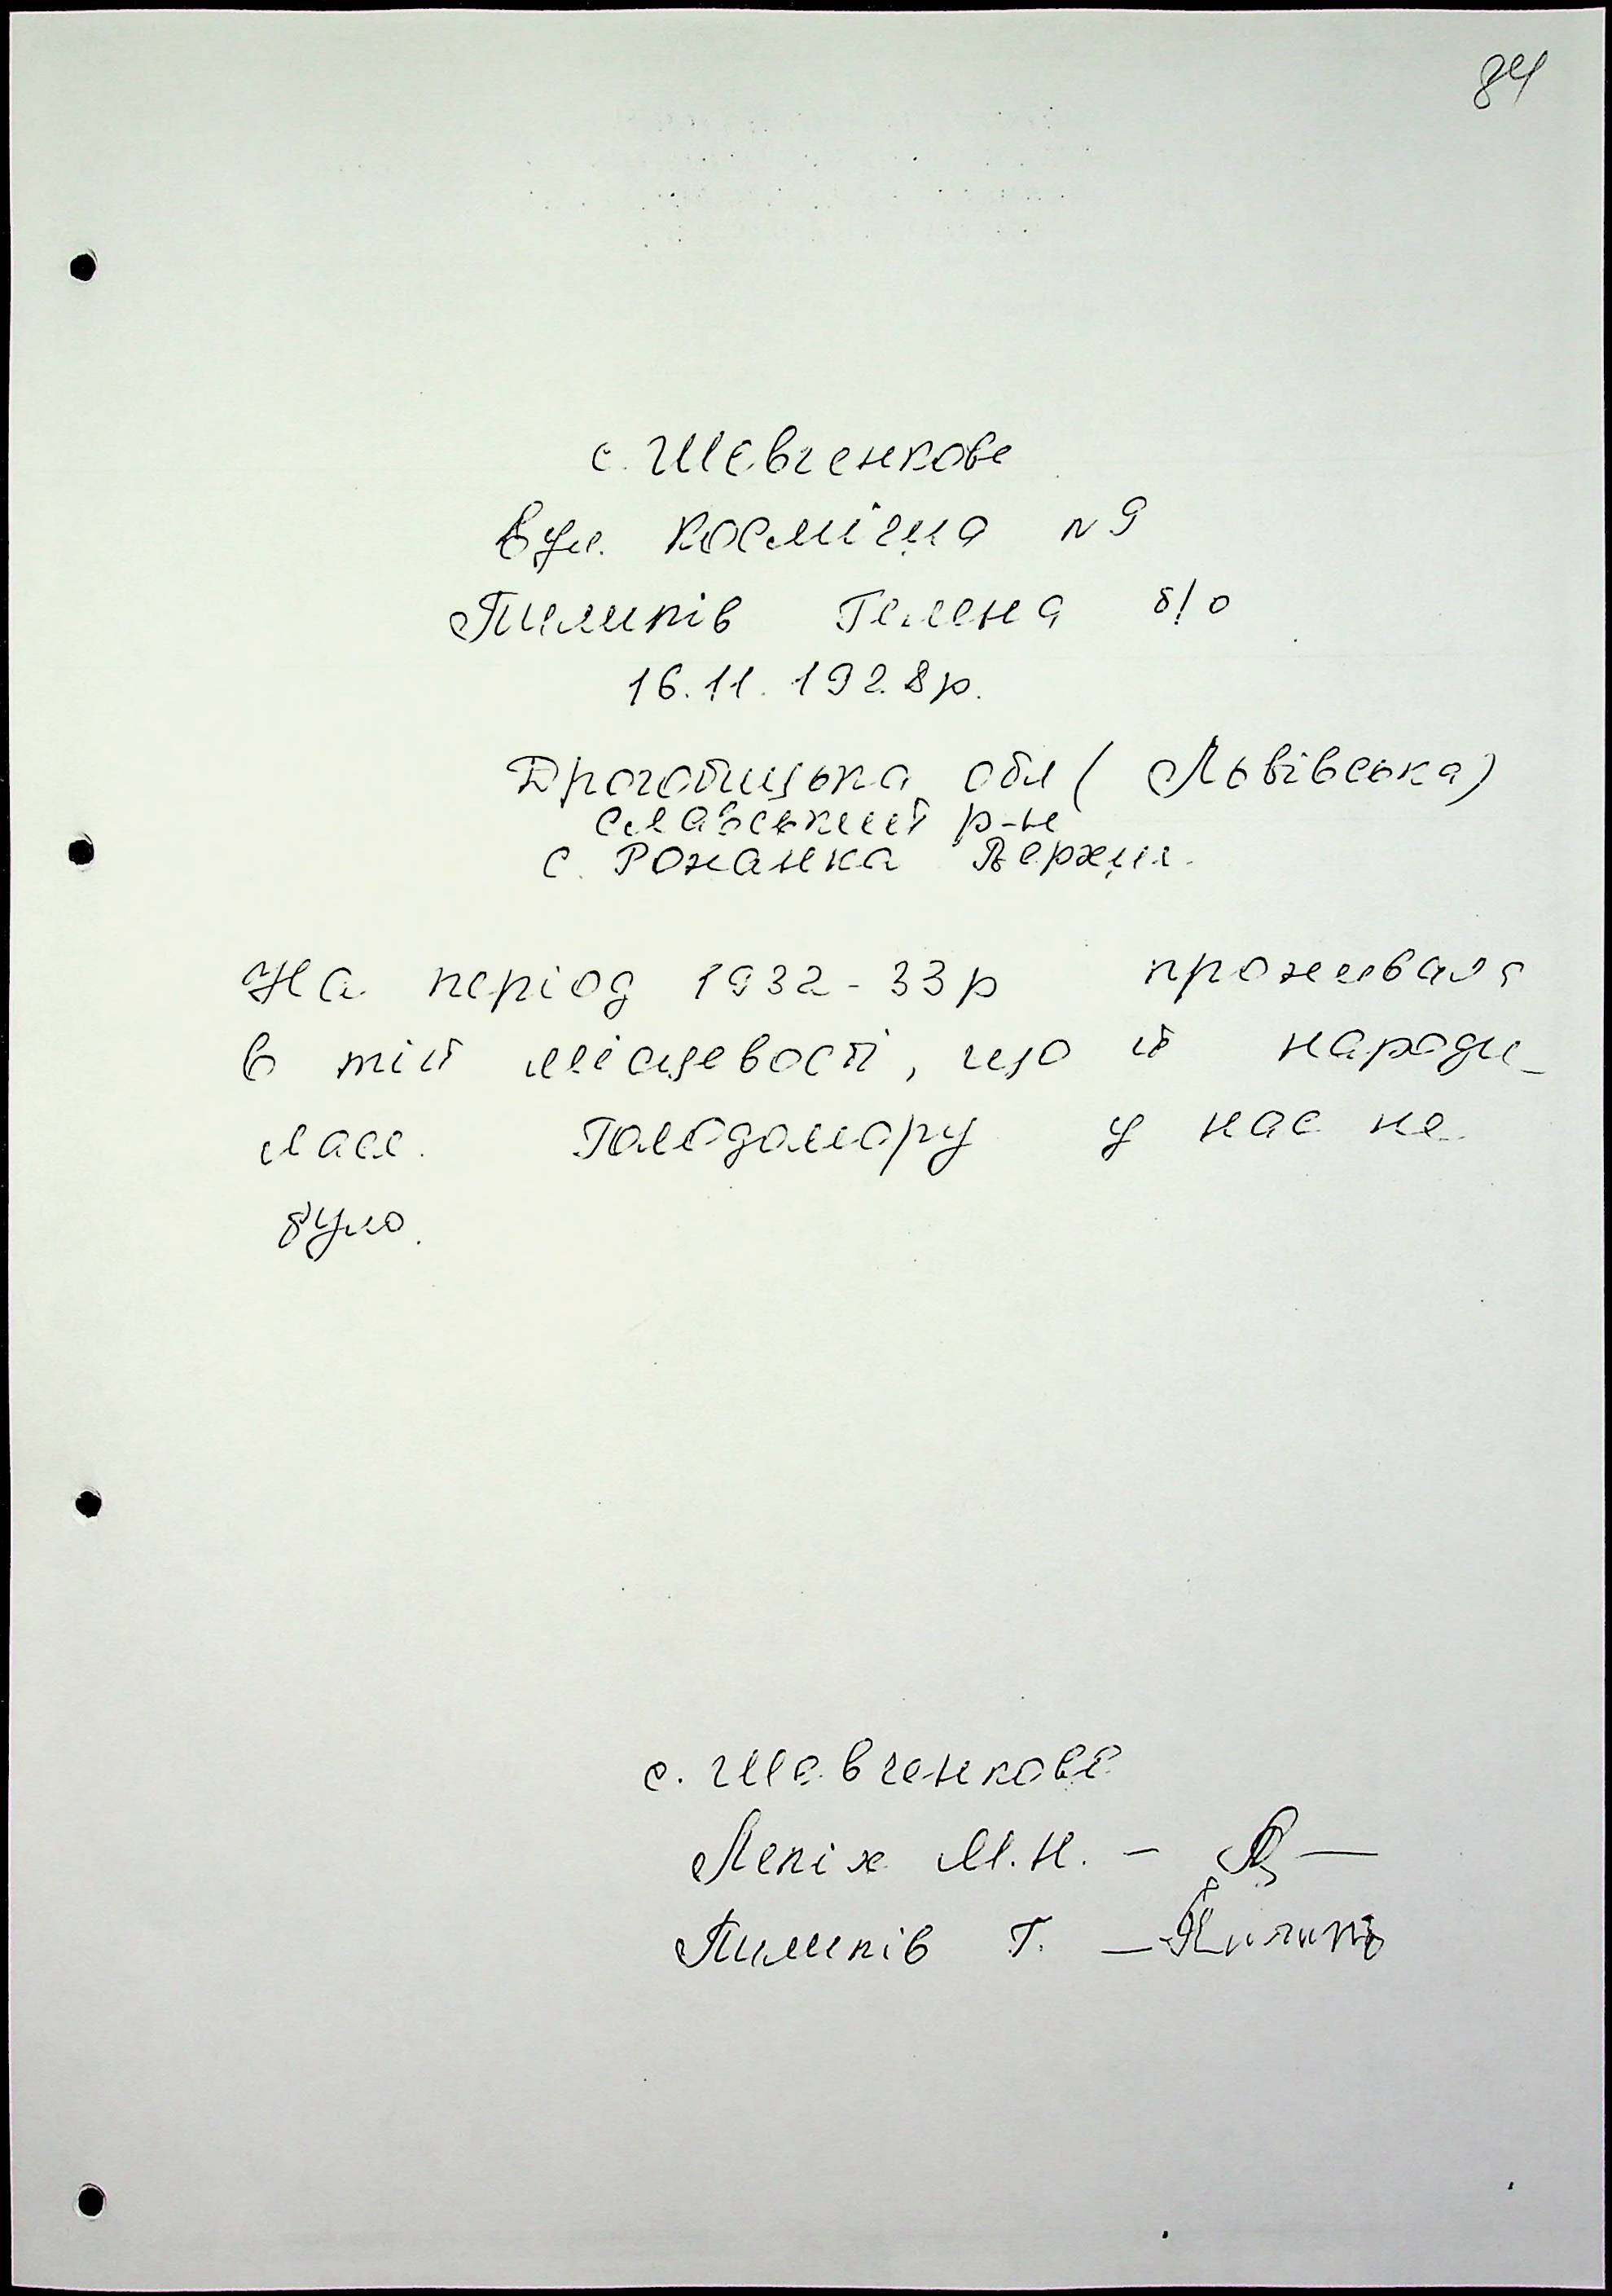 84
с. Шевченкове
вул. Космічна N 9
Пилипів Гелена б/о
16.11.1928р.
Дрогобицька обл ( Львівська)
Славський р-н
с. Рожанка Верхня.
На період 1932-33р проживала
в тій місцевості, що й народи_
лася. Голодомору у нас не
було.
с. Шевченкове
Лепіх М.Н. –
Пилипів Г. – Пилипів